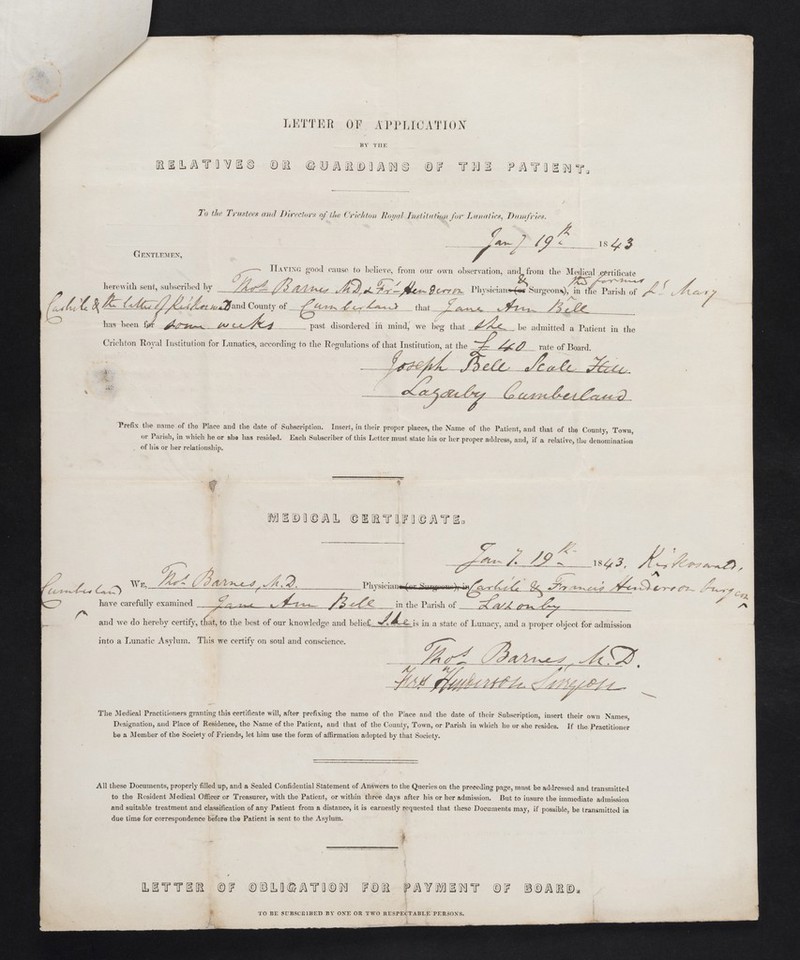 LETTER OF APPLICATION
BY THE
RELATIVES OR GUARDIANS OF THE PATIENT.
To the Trustees and Directors of the Crichton Royal Institution for Lunatics, Dumfries.
Jany 19th 1843
GENTLEMEN,
HAVING good cause to believe, from our own observation, and from the Medical certificate
herewith sent, subscribed by Thos Barnes M.D. & Frs Henderson Physician (or & Surgeons), the former in the Parish of St Mary
Carlisle & the latter of Kirkoswald and County of Cumberland that Jane Ann Bell
has been for some weeks past disordered in mind, we beg that She be admitted a Patient in the
Crichton Royal Institution for Lunatics, according to the Regulations of that Institution, at the £40 rate of Board.
Joseph Bell Scale Hill
Lazonby Cumberland
Prefix the name of the Place and the date of Subscription. Insert, in their proper places, the Name of the Patient, and that of the County, Town,
or Parish, in which he or she has resided. Each Subscriber of this Letter must state his or her proper address, and, if a relative, the denomination
of his or her relationship.
MEDICAL CERTIFICATE.
Jany. 19th 1843. Kirkoswald,
Cumberland WE, Thos Barnes, M.D. Physician (or Surgeon), in Carlisle & Francis Henderson Surgeon
have carefully examined Jane Ann Bell in the Parish of Lazonby
and we do hereby certify, that, to the best of our knowledge and belief She is in a state of Lunacy, and a proper object for admission
into a Lunatic Asylum. This we certify on soul and conscience.
Thos Barnes, M.D.
Frs Henderson Surgeon
The Medical Practitioners granting this certificate will, after prefixing the name of the Place and the date of their Subscription, insert their own Names,
Designation, and Place of Residence, the Name of the Patient, and that of the County, Town, or Parish in which he or she resides. If the Practitioner
be a Member of the Society of Friends, let him use the form of affirmation adopted by that Society.
All these Documents, properly filled up, and a Sealed Confidential Statement of Answers to the Queries on the preceding page, must be addressed and transmitted
to the Resident Medical Officer or Treasurer, with the Patient, or within three days after his or her admission. But to insure the immediate admission
and suitable treatment and classification of any Patient from a distance, it is earnestly requested that these Documents may, if possible, be transmitted in
due time for correspondence before the Patient is sent to the Asylum.
LETTER OF OBLIGATION FOR PAYMENT OF BOARD.
TO BE SUBSCRIBED BY ONE OR TWO RESPECTABLE PERSONS.